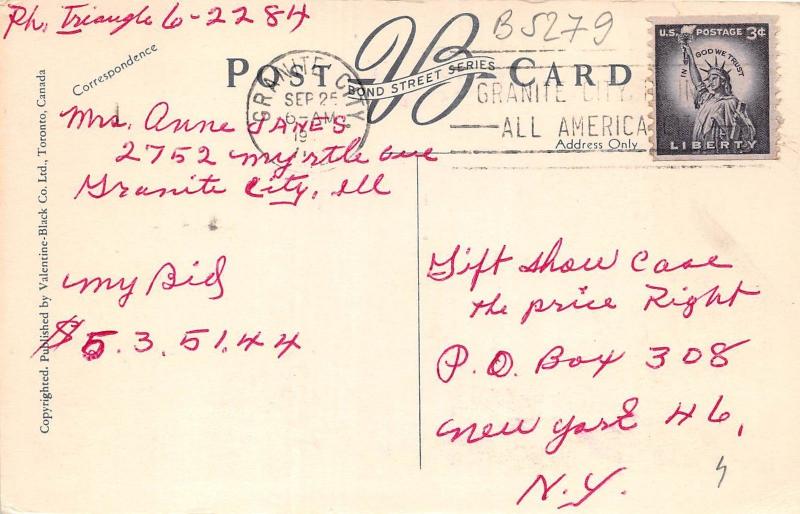 Ph. Triangle 6-2284
B5279
Correspondence
POST CARD
BOND STREET SERIES
VB
U.S. POSTAGE 3¢
IN GOD WE TRUST
LIBERTY
GRANITE CITY,
SEP 25
6-AM
19
GRANITE CITY,
ALL AMERICA
Address Only
Mrs. Anne JANES
2752 myrtle ave
Granite City, Ill
My Bid
$5.3.51.44
Gift show Case
the price Right
P.O. Box 308
new york 46,
N.Y.
Copyrighted. Published by Valentine-Black Co. Ltd., Toronto, Canada